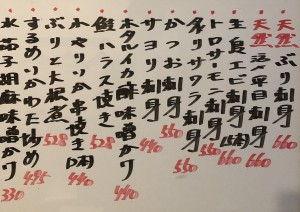 天然ぶり刺身 660
天然活〆平目刺身 660
生鳥エビ刺身(5本) 660
トロサーモン刺身 550
炙りサワラ刺身 550
かつお刺身 550
サヨリ刺身 440
ホタルイカ酢味噌かけ 440
鮭ハラス焼き 528
小やりいか串焼き(2本) 440
ぶりと大根煮 528
するめいかわた炒め 495
水茄子胡麻味噌かけ 330